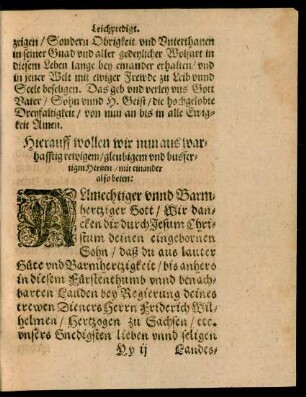 Leichpredigt.
zeigen / Sondern Obrigkeit vnd Vnterthanen
in seiner Gnad vnd aller gedeylicher Wolfart in
diesem Leben lange bey einander erhalten / vnd
in jener Welt mit ewiger Frewde zu Leib vnnd
Seele beseligen. Das geb vnd verley vns Gott
Vater / Sohn vnnd H. Geist / die hochgelobte
Dreyfaltigkeit / von nun an bis in alle Ewig-
keit Amen.
Hierauff wollen wir nun aus war-
hafftig rewigem / gleubigem vnd busfer-
tigem Hertzen / mit einander
also beten:
Almechtiger vnnd Barm-
hertziger Gott / Wir dan-
cken dir durch Jesum Chri-
stum deinen eingebornen
Sohn / daß du aus lauter
Güte vnd Barmhertzigkeit / bis anhero
in diesem Fürstenthumb vnnd benach-
barten Landen bey Regierung deines
trewen Dieners Herrn Friderich Wil-
helmen / Hertzogen zu Sachsen / etc.
vnsers Gnedigsten lieben vnnd seligen
Hy ij Landes-